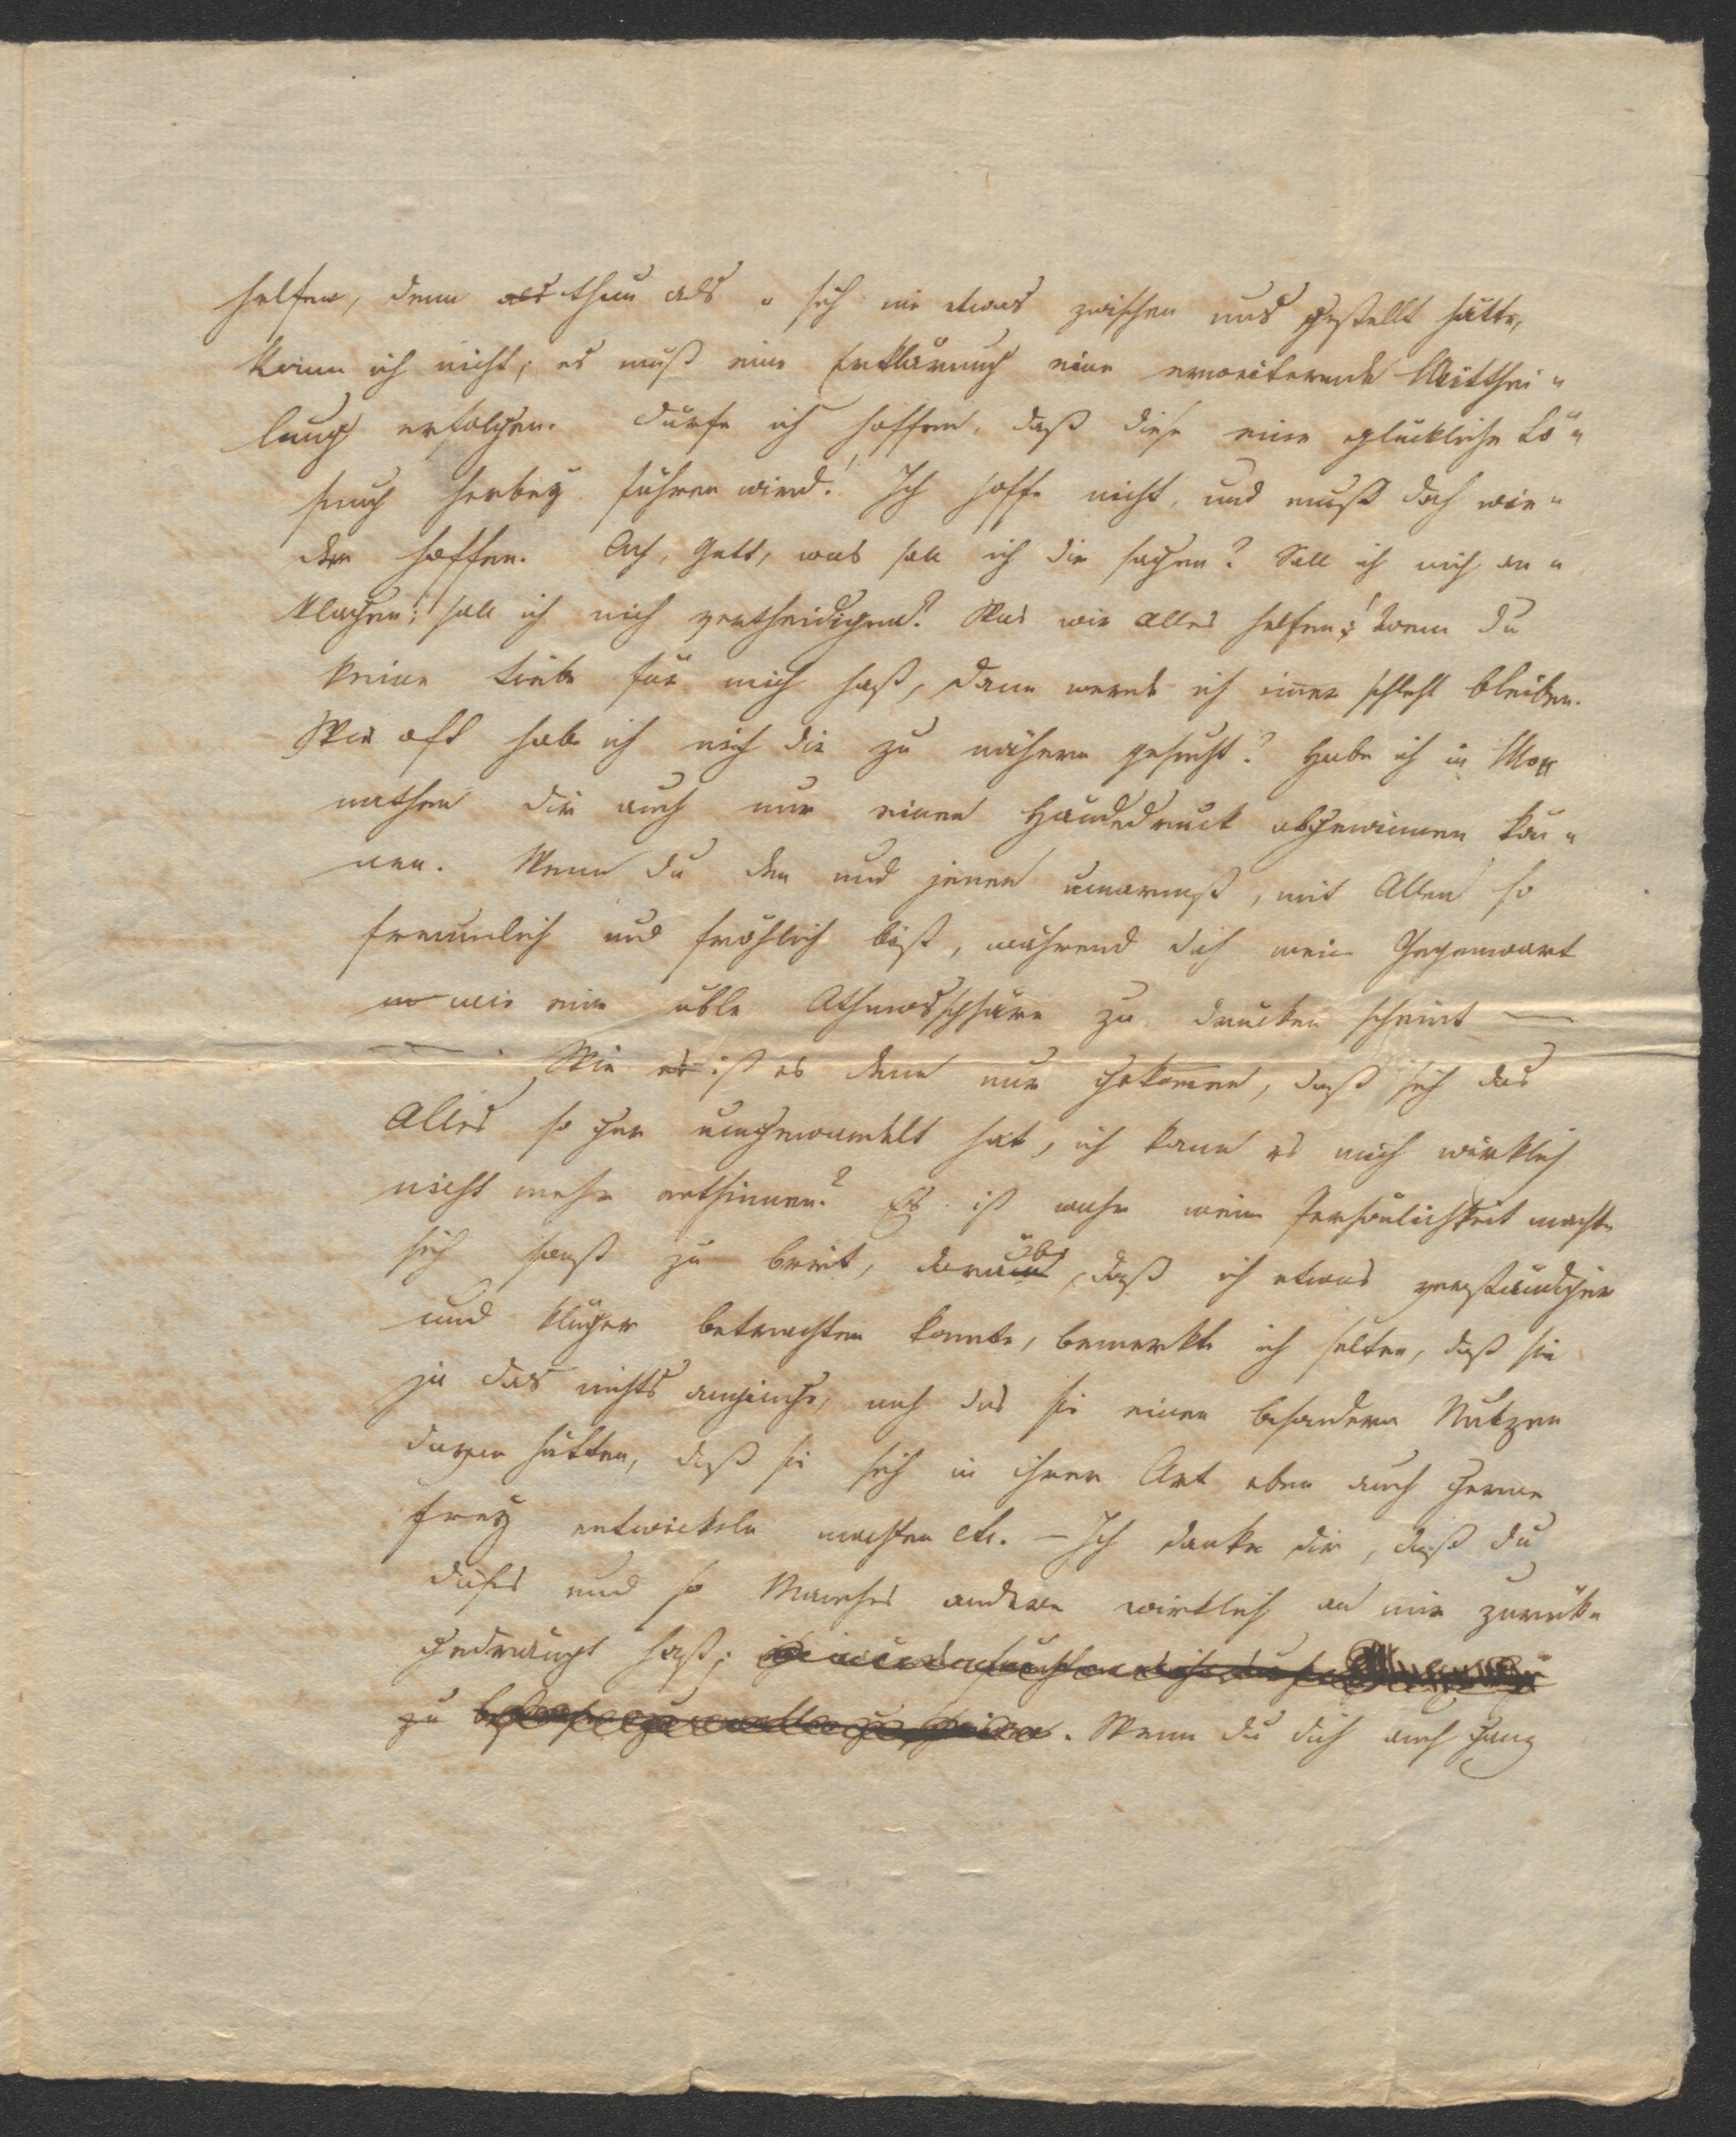 helfen, denn als thun als o sich nie etwas zwischen uns gestellt hätte,
kann ich nicht; es muß eine Erklärung eine erweiternde Mitthei-
lung erfolgen. Dürfe ich hoffen, daß diese eine glückliche Lö-
sung herbey führen wird! Ich hoffe nicht, und muß doch wie-
der hoffen. Ach, Gott, was soll ich dir sagen? Soll ich mich an-
klagen; soll ich mich vertheidigen? Was wir alles helfen! wenn du
keine Liebe für mich hast, dann werde ich immer schlecht bleiben.
Wie oft habe ich mich dir zu nähern gesucht? Habe ich in Mo
nathen dir auch nur einen Händedruck abgewinnen kön-
nen. Wenn du den und jenen umarmst, mit Allen so
freundlich und fröhlich bist, während dich meine Gegenwart
wie eine üble Athmosphäre zu drücken scheint —
— . Wie es ist es denn nur gekommen, daß sich das
Alles so gar umgewandelt hat, ich kann es mich wirklich
nicht mehr entsinnen? Es ist wahr meine Persönlichkeit machte
sich sonst zu breit, darüber, daß ich etwas verständiger
und klüger betrachten konnte, bemerkte ich selten, daß sie
ja das nichts anginge, auch das sie einen besondern Nutzen
davon hätten, daß sie sich in ihrer Art eben auch gerne
frey entwickeln mochten etc. — Ich danke dir, daß du
dieses und so Manches andere wirklich an mir zurück-
gedrängt hast;
zu . Wenn du dich auch ganz